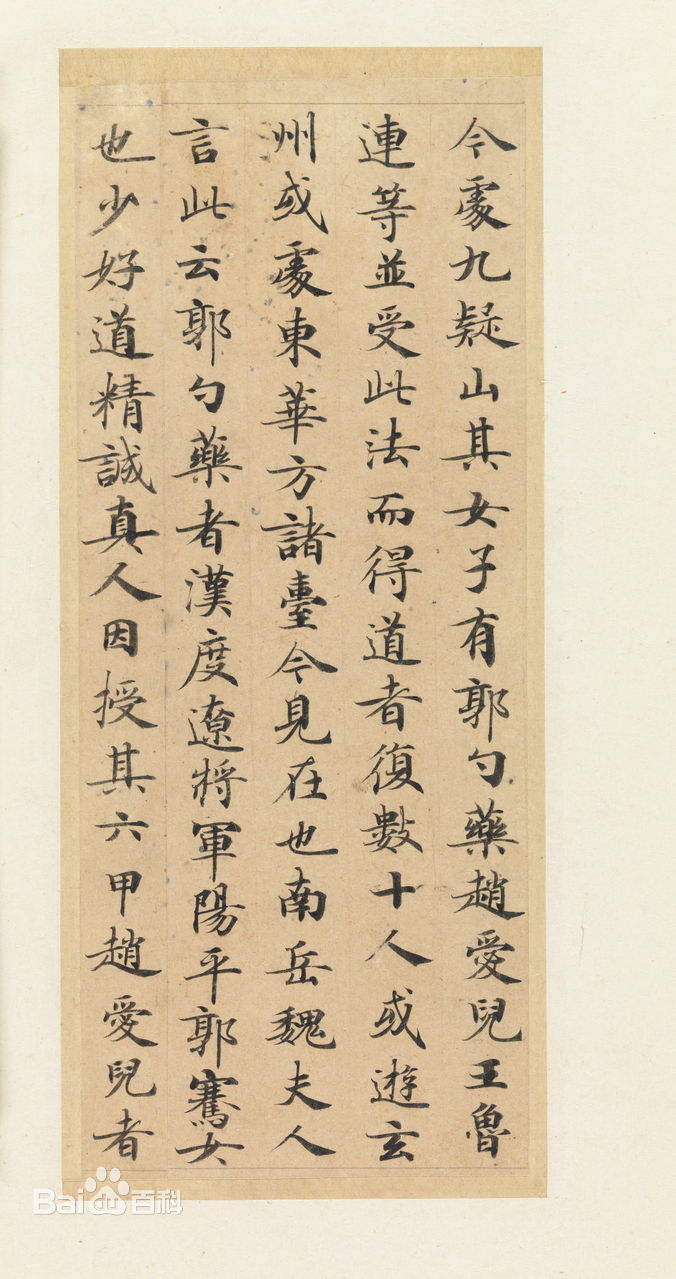 今處九疑山其女子有郭勺藥趙愛兒王魯
連等並受此法而得道者復數十人或遊玄
州或處東華方諸臺今見在也南岳魏夫人
言此云郭勺藥者漢度遼將軍陽平郭騫女
也少好道精誠真人因授其六甲趙愛兒者
Baidu百科